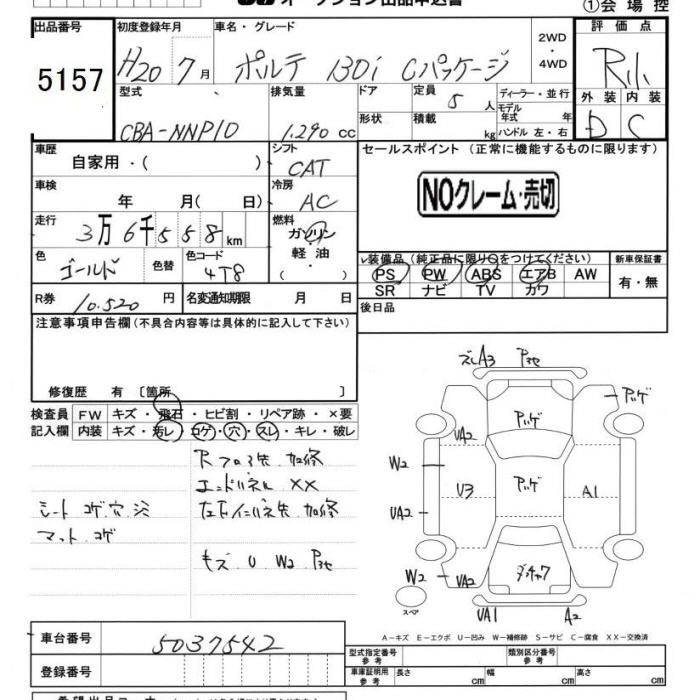 オークション出品申込書
①会場控
出品番号 初度登録年月 車名・グレード 評価点
5157
H20 7月 ポルテ 130i Cパッケージ 2WD・4WD
R小
型式 排気量 ドア 定員 5人 ディーラー・並行 外装 内装
CBA-NNP10 1.290 cc 形状 積載 kg モデル年式 年 ハンドル 左・右 D C
車歴 自家用・( ) シフト CAT セールスポイント (正常に機能するものに限ります)
車検 年 月( 日) 冷房 AC
NOクレーム・売切
走行 3万6千558km 燃料 ガソリン 軽油・( )
色 ゴールド 色替 色コード 4T8
装備品(純正品に限り○をつけてください) 新車保証書
PS PW ABS エアB AW 有・無
SR ナビ TV カワ
R券 10.520円 名変通知期限 月 日 後日品
注意事項申告欄(不具合内容等は具体的に記入して下さい)
修復歴 有 〔箇所 〕
検査員 FW キズ・飛石・ヒビ割・リペア跡・×要
記入欄 内装 キズ・汚レ・コゲ・穴・スレ・キレ・破レ
Rフロア先 加修
エンドパネル XX
シート コゲ 穴
マット コゲ
加修
キズ U W2
A3
UA2
W2
U3
A1
UA2
W2 UA2
スペア
UA1 A2
A－キズ E－エクボ U－凹み W－補修跡 S－サビ C－腐食 XX－交換済
車台番号 5037542
型式指定番号 参考 類別区分番号 参考
登録番号
車庫証明用 参考 長さ cm 幅 cm 高さ cm
希望出品コーナー